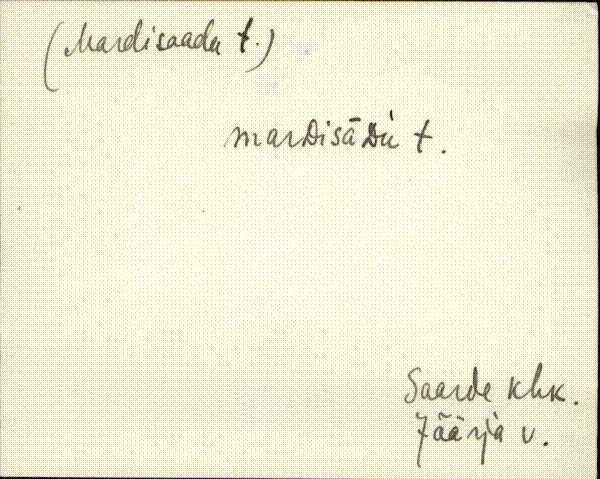 (Mardisaadu t.)
marDisāDù t.
Saarde khk.
Jäärja v.